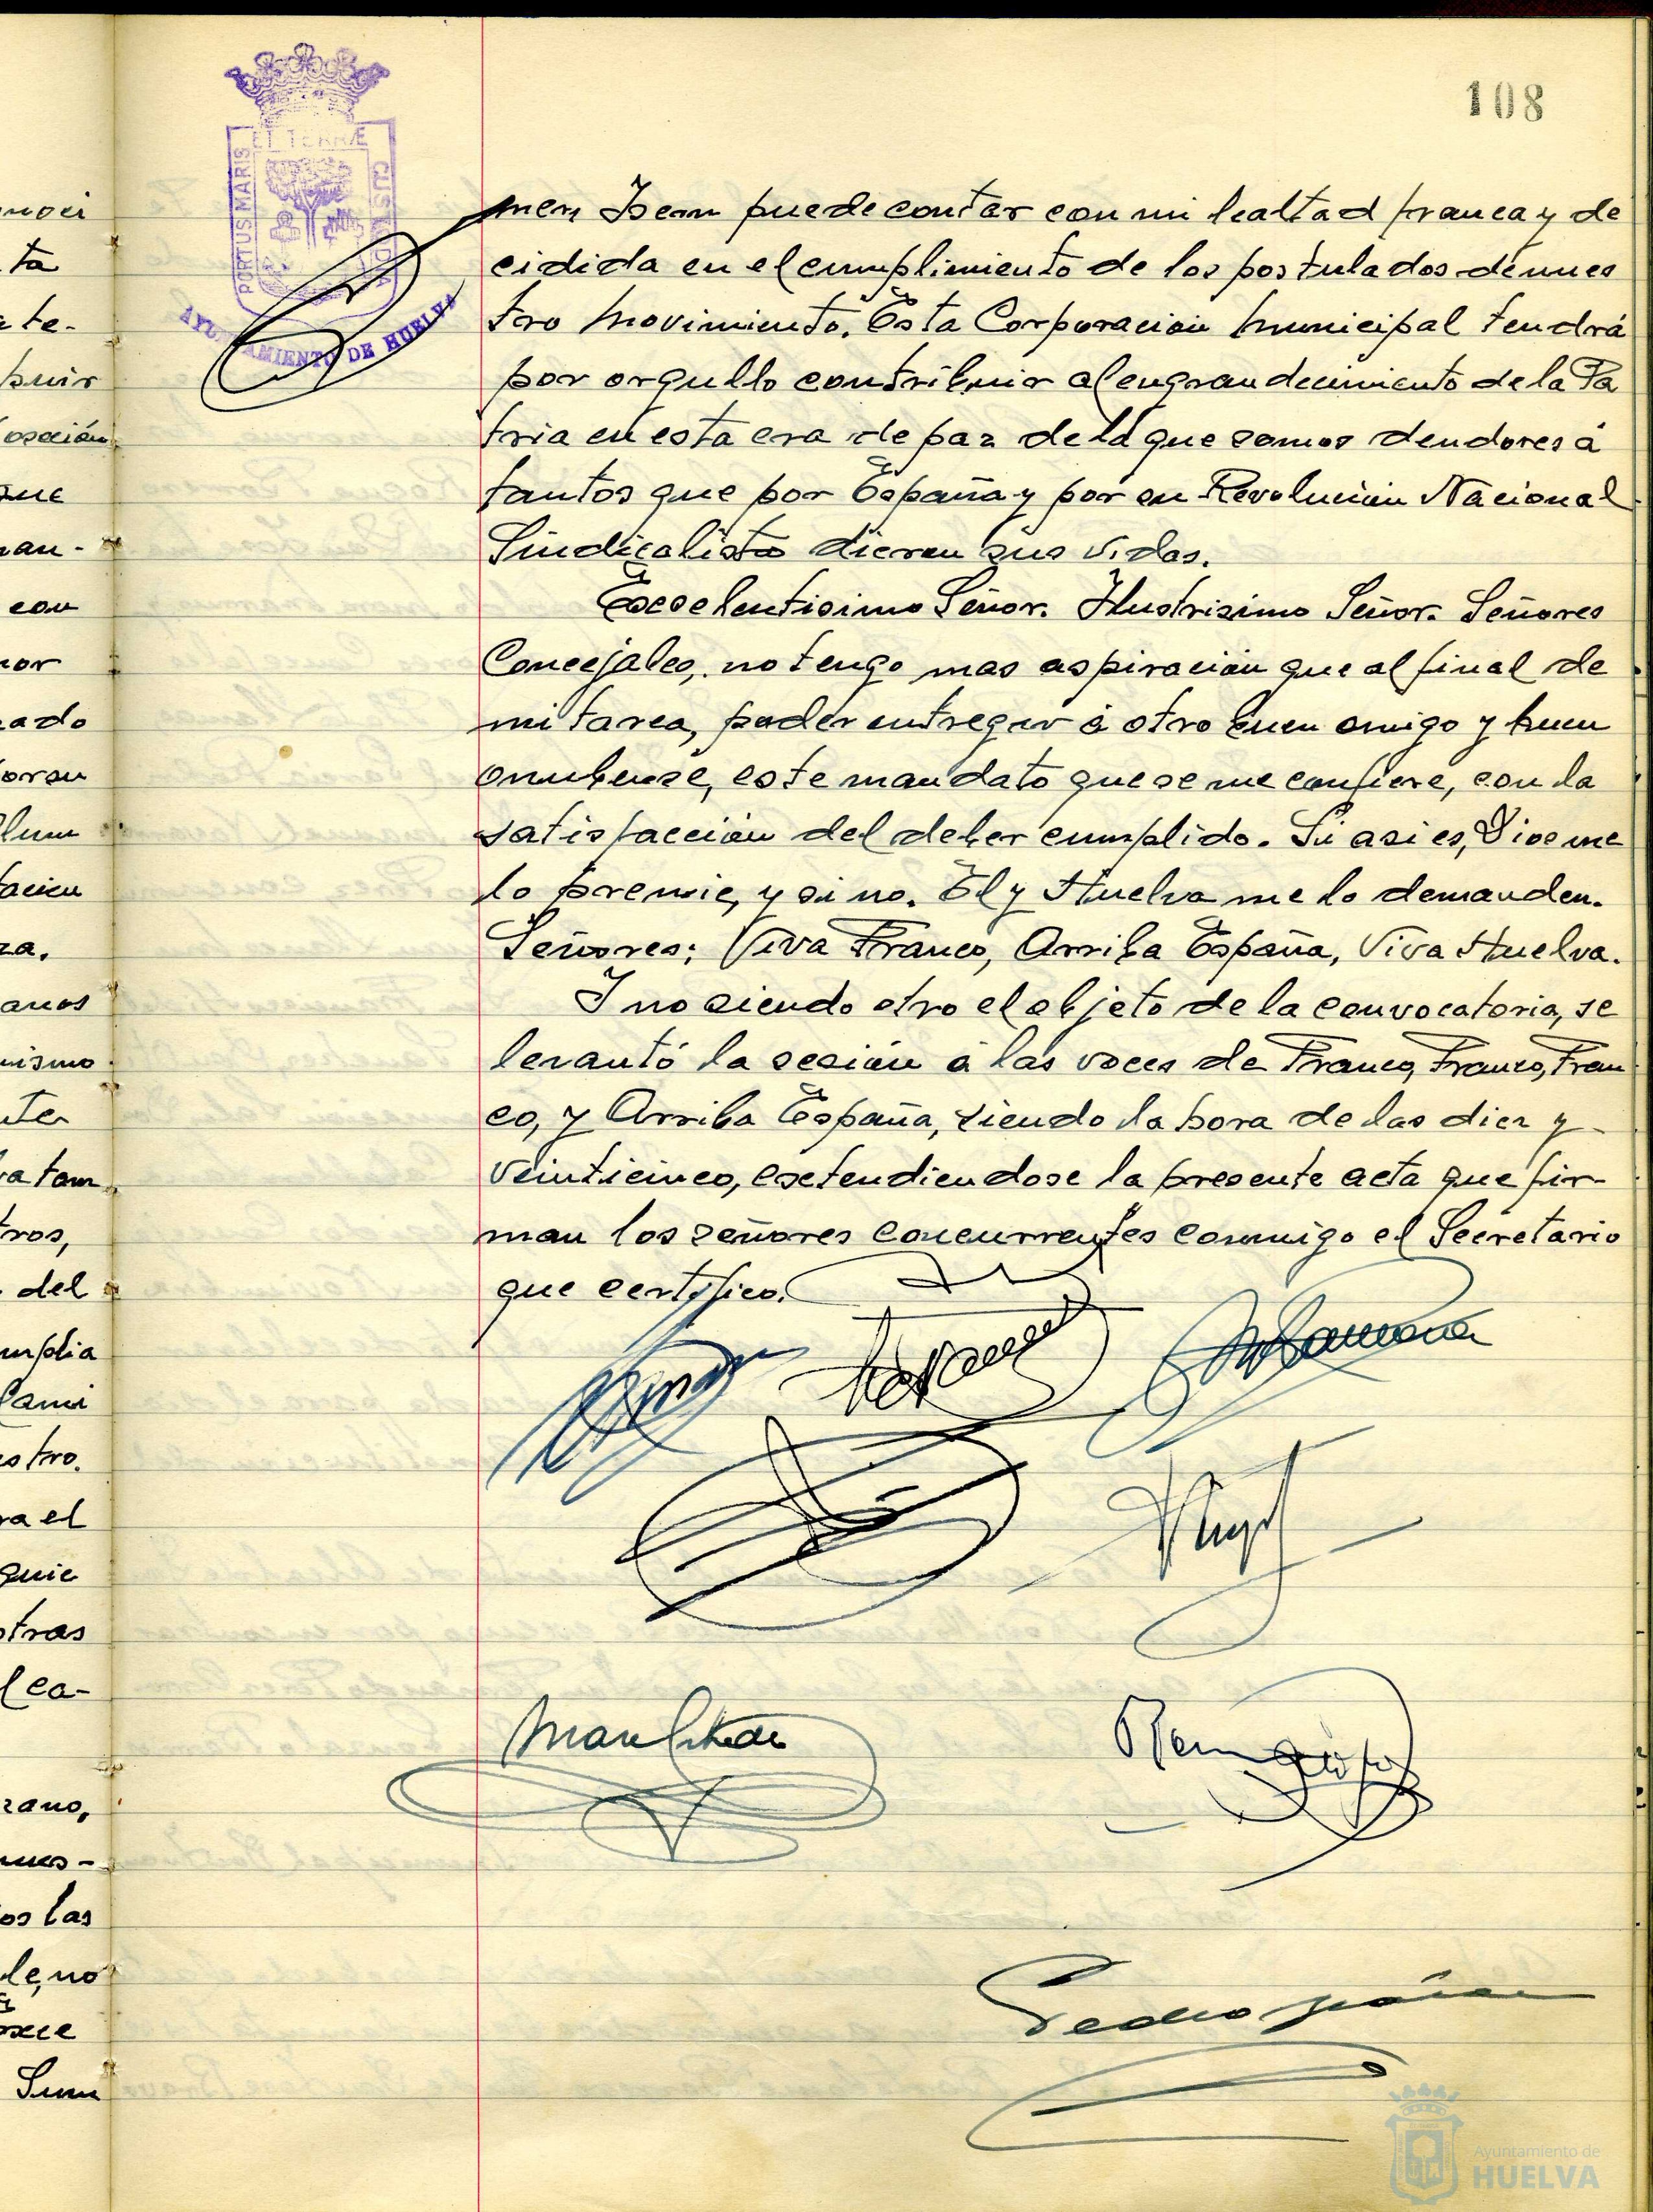 108
PORTUS MARIS
ET TERRÆ
CUSTODIA
AYUNTAMIENTO DE HUELVA
puede contar con mi lealtad franca y de
cidida en el cumplimiento de los postulados de nues
tro Movimiento. Esta Corporación Municipal tendrá
por orgullo contribuir al engrandecimiento de la Pa
tria en esta era de paz de la que somos deudores á
tantos que por España y por su Revolución Nacional
Sindicalista dieron sus vidas.
Escelentisimo Señor. Ilustrisimo Señor. Señores
Concejales, no tengo mas aspiración que al final de
mi tarea, poder entregar á otro buen amigo y buen
onubense, este mandato que se me confiere, con la
satisfacción del deber cumplido. Si asi es, Dios me
lo premie, y si no. El y Huelva me lo demanden.
Señores: Viva Franco, Arriba España, Viva Huelva.
I no siendo otro el objeto de la convocatoria, se
levantó la sesión á las voces de Franco, Franco, Fran
co, y Arriba España, siendo la hora de las diez y
veinticinco, esctendiendose la presente acta que fir-
man los señores concurrentes conmigo el Secretario
que certifico.
Pedro
Ayuntamiento de
HUELVA
ta
a te-
que
con
ado
za.
anos
tros,
del
Cami
ra el
otras
l ca-
zano,
nues-
os las
le, no